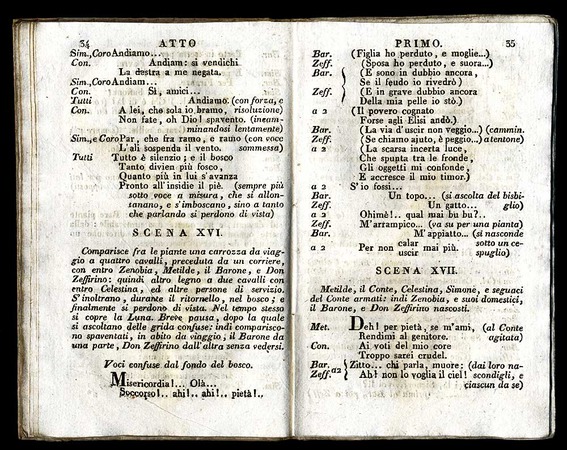 34 ATTO
Sim., Coro Andiamo...
Con. Andiam: si vendichi
La destra a me negata.
Sim., Coro Andiam...
Con. Sì, amici...
Tutti Andiamo. (con forza, e
Con. A lei, che sola io bramo, risoluzione)
Non fate, oh Dio! spavento. (incam-
minandosi lentamente)
Sim., e Coro Par, che fra ramo, e ramo (con voce
L'ali sospenda il vento. sommessa)
Tutti Tutto è silenzio; e il bosco
Tanto divien più fosco,
Quanto più in lui s'avanza
Pronto all'insidie il piè. (sempre più
sotto voce a misura, che si allon-
tanano, e s'imboscano, sino a tanto
che parlando si perdono di vista)
SCENA XVI.
Comparisce fra le piante una carrozza da viag-
gio a quattro cavalli, preceduta da un corriere,
con entro Zenobia, Metilde, il Barone, e Don
Zeffirino: quindi altro legno a due cavalli con
entro Celestina, ed altre persone di servizio.
S'inoltrano, durante il ritornello, nel bosco; e
finalmente si perdono di vista. Nel tempo stesso
si copre la Luna. Breve pausa, dopo la quale
si ascoltano delle grida confuse: indi comparisco-
no spaventati, in abito da viaggio, il Barone da
una parte, Don Zeffirino dall'altra senza vedersi.
Voci confuse dal fondo del bosco.
Misericordia!... Olà...
Soccorso!.. ahi!.. ahi!.. pietà!..
PRIMO. 35
Bar. (Figlia ho perduto, e moglie...)
Zeff. (Sposa ho perduto, e suora...)
Bar. (E sono in dubbio ancora,
Se il feudo io rivedrò)
Zeff. (E in grave dubbio ancora
Della mia pelle io stò.)
a 2 (Il povero cognato
Forse agli Elisi andò.)
Bar. (La via d'uscir non veggio...) (cammin.
Zeff. (Se chiamo ajuto, è peggio...) atentone)
a 2 (La scarsa incerta luce,
Che spunta tra le fronde,
Gli oggetti mi confonde,
E accresce il mio timor.)
a 2 S'io fossi...
Bar. Un topo... (si ascolta del bisbi-
Zeff. Un gatto... glio)
a 2 Ohimè!.. qual mai bu bu?..
Zeff. M'arrampico... (va su per una pianta)
Bar. M'appiatto... (si nasconde
a 2 Per non calar uscir mai più. sotto un ce-
spuglio)
SCENA XVII.
Metilde, il Conte, Celestina, Simone, e seguaci
del Conte armati: indi Zenobia, e suoi domestici,
il Barone, e Don Zeffirino nascosti.
Met. Deh! per pietà, se m'ami, (al Conte
Rendimi al genitore. agitata)
Con. Ai voti del mio core
Troppo sarei crudel.
Bar. Zeff. a2 Zitto... chi parla, muore: (dai loro na-
Ah! non lo voglia il ciel! scondigli, e
ciascun da se)